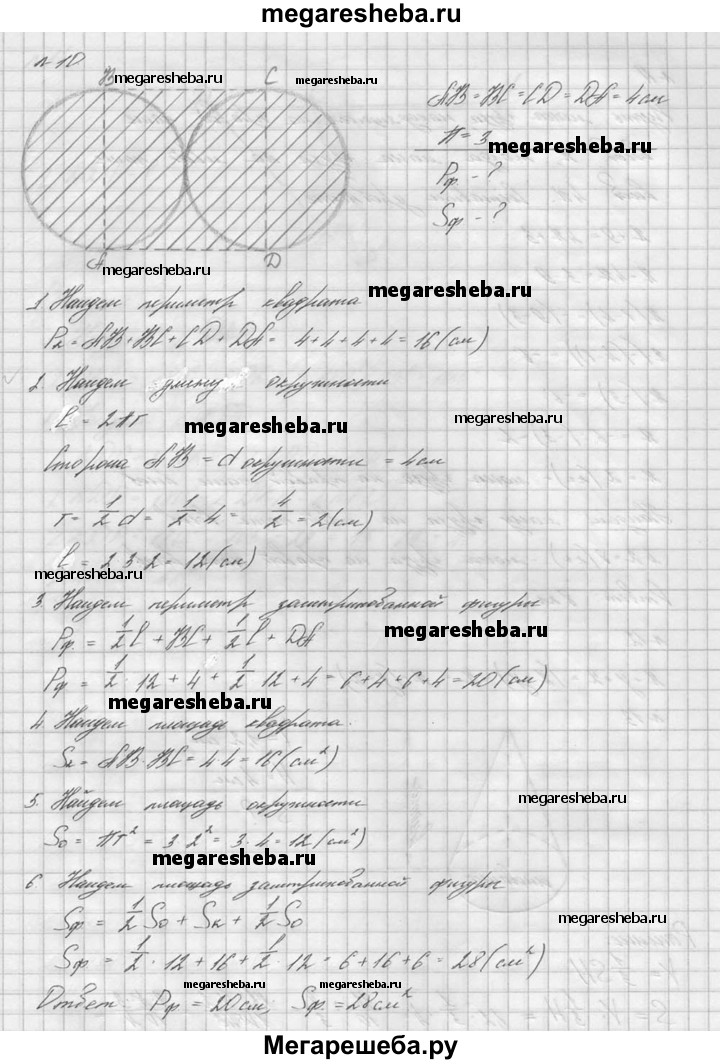 megaresheba.ru
№ 10
B megaresheba.ru C megaresheba.ru
AB = BC = CD = DA = 4 см
π = 3
megaresheba.ru
Pф. - ?
Sф - ?
A D
megaresheba.ru
1 Найдем периметр квадрата
megaresheba.ru
Pк = AB + BC + CD + DA = 4+4+4+4 = 16 (см)
2. Найдем длину окружности
l = 2πr
megaresheba.ru
megaresheba.ru
Сторона AB = d окружности = 4 см
r = 1/2 d = 1/2 · 4 = 4/2 = 2 (см)
l = 2 · 3 · 2 = 12 (см)
megaresheba.ru
3. Найдем периметр заштрихованной фигуры
Pф. = 1/2 l + BC + 1/2 l + DA
megaresheba.ru
Pф = 1/2 · 12 + 4 + 1/2 · 12 + 4 = 6 + 4 + 6 + 4 = 20 (см)
megaresheba.ru
4. Найдем площадь квадрата.
Sк = AB · BC = 4 · 4 = 16 (см²)
5. Найдем площадь окружности
megaresheba.ru
So = πr² = 3 · 2² = 3 · 4 = 12 (см²)
megaresheba.ru
6 Найдем площадь заштрихованной фигуры
Sф = 1/2 So + Sк + 1/2 So
megaresheba.ru
Sф = 1/2 · 12 + 16 + 1/2 · 12 = 6 + 16 + 6 = 28 (см²)
megaresheba.ru
Ответ Pф = 20 см, Sф = 28 см²
megaresheba.ru
Мегарешеба.ру